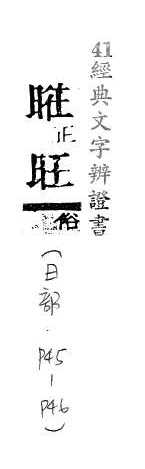 41經典文字辨證書
暀正
旺俗
(日部．P45-P46)